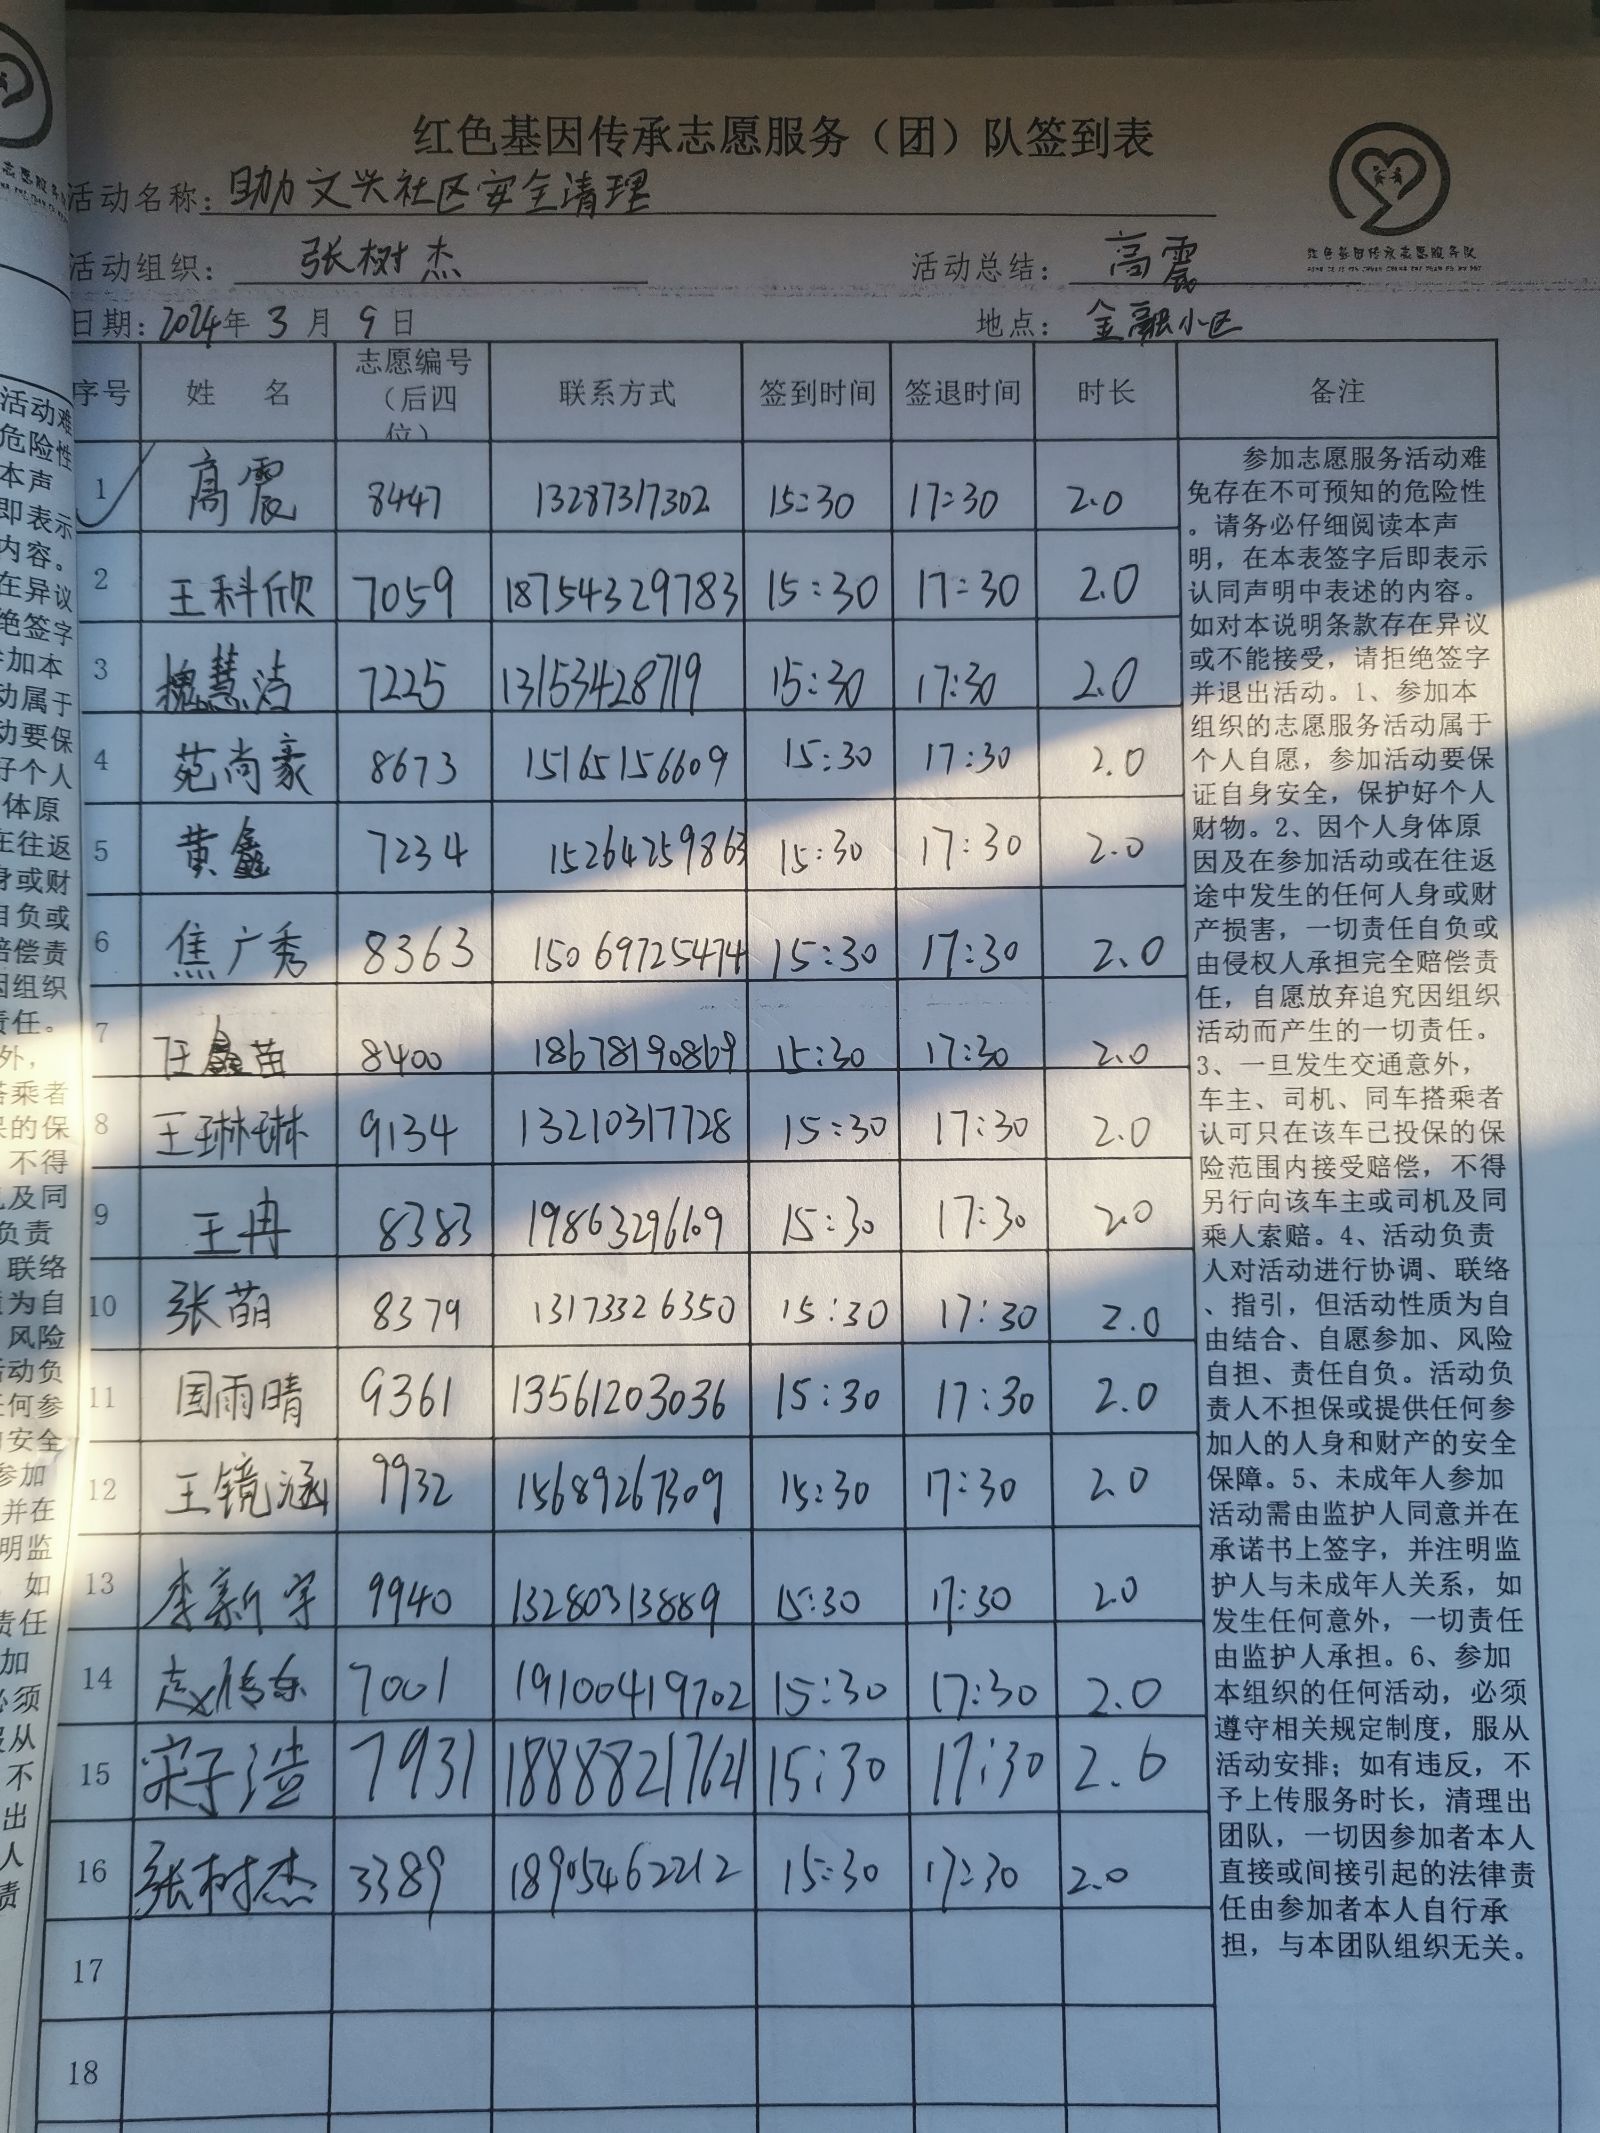 红色基因传承志愿服务（团）队签到表
活动名称：助力文兴社区安全清理
活动组织： 张树杰 活动总结： 高震
红色基因传承志愿服务队
日期：2024年 3 月 9 日 地点： 金融小区
序号 姓 名 志愿编号（后四位） 联系方式 签到时间 签退时间 时长 备注
1 高震 8447 13287317302 15:30 17:30 2.0
2 王科欣 7059 18754329783 15:30 17:30 2.0
3 槐慧洁 7225 13153428719 15:30 17:30 2.0
4 苑尚豪 8673 15165156609 15:30 17:30 2.0
5 黄鑫 7234 15264259863 15:30 17:30 2.0
6 焦广秀 8363 15069725474 15:30 17:30 2.0
7 任鑫苗 8400 18678190869 15:30 17:30 2.0
8 王琳琳 9134 13210317728 15:30 17:30 2.0
9 王冉 8383 19863296109 15:30 17:30 2.0
10 张萌 8379 13173326350 15:30 17:30 2.0
11 国雨晴 9361 13561203036 15:30 17:30 2.0
12 王镜涵 9932 15689267309 15:30 17:30 2.0
13 李新宇 9940 13280313889 15:30 17:30 2.0
14 赵传东 7001 19100419702 15:30 17:30 2.0
15 宋子浩 7931 18888217621 15:30 17:30 2.0
16 张树杰 3389 18905462212 15:30 17:30 2.0
17
18
参加志愿服务活动难
免存在不可预知的危险性
。请务必仔细阅读本声
明，在本表签字后即表示
认同声明中表述的内容。
如对本说明条款存在异议
或不能接受，请拒绝签字
并退出活动。1、参加本
组织的志愿服务活动属于
个人自愿，参加活动要保
证自身安全，保护好个人
财物。2、因个人身体原
因及在参加活动或在往返
途中发生的任何人身或财
产损害，一切责任自负或
由侵权人承担完全赔偿责
任，自愿放弃追究因组织
活动而产生的一切责任。
3、一旦发生交通意外，
车主、司机、同车搭乘者
认可只在该车已投保的保
险范围内接受赔偿，不得
另行向该车主或司机及同
乘人索赔。4、活动负责
人对活动进行协调、联络
、指引，但活动性质为自
由结合、自愿参加、风险
自担、责任自负。活动负
责人不担保或提供任何参
加人的人身和财产的安全
保障。5、未成年人参加
活动需由监护人同意并在
承诺书上签字，并注明监
护人与未成年人关系，如
发生任何意外，一切责任
由监护人承担。6、参加
本组织的任何活动，必须
遵守相关规定制度，服从
活动安排；如有违反，不
予上传服务时长，清理出
团队，一切因参加者本人
直接或间接引起的法律责
任由参加者本人自行承
担，与本团队组织无关。